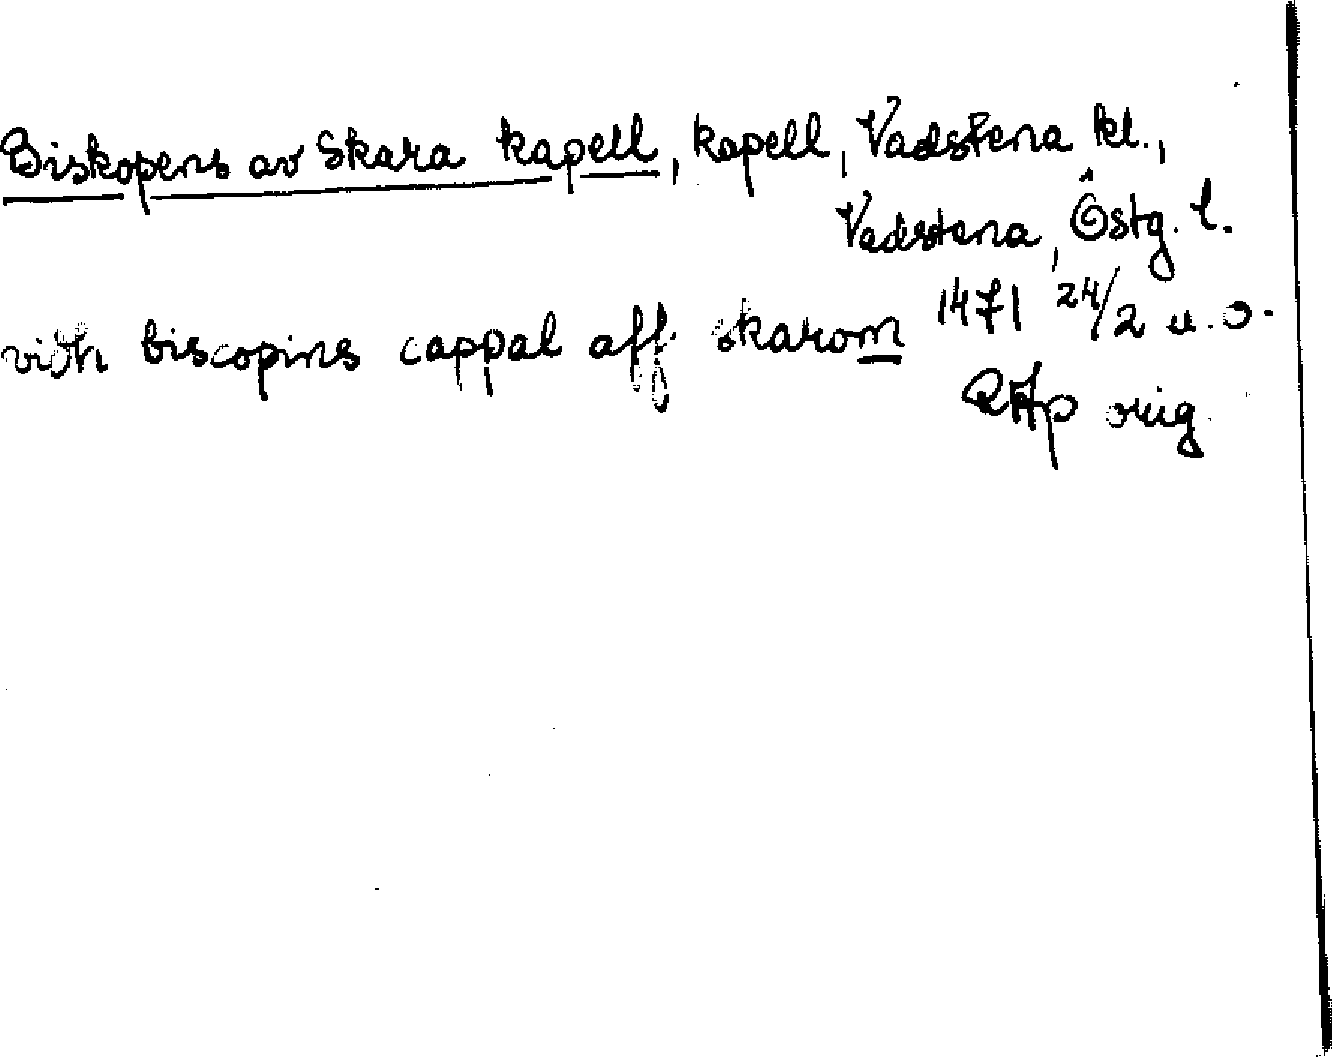 Biskopens av Skara kapell, kapell, Vadstena kl.,
Vadstena, Östg. l.
vidh biscopins cappal aff skarom 1471 24/2 u.o.
RAp orig.